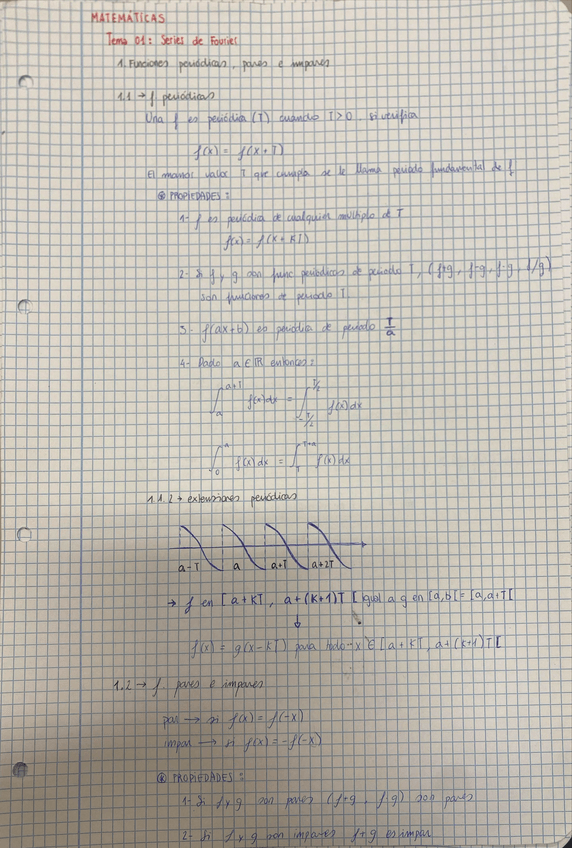 MATEMÁTICAS
Tema 01: Series de Fourier
1. Funciones periódicas, pares e impares
1.1 → f. periódicas
Una f es periódica (T) cuando T>0 si verifica
f(x) = f(x+T)
El menor valor T que cumpla se le llama periodo fundamental de f
⊛ PROPIEDADES:
1- f es periódica de cualquier múltiplo de T
f(x) = f(x+kT)
2- Si f y g son func periódicas de periodo T, (f+g, f-g, f·g, f/g)
son funciones de periodo T.
3- f(ax+b) es periódica de periodo T/a
4- Dado a ∈ ℝ entonces:
∫_a^{a+T} f(x)dx = ∫_{-T/2}^{T/2} f(x)dx
∫_0^a f(x)dx = ∫_T^{T+a} f(x)dx
1.1.2 → extensiones periódicas
a-T a a+T a+2T
→ f en [a+kT, a+(k+1)T[ igual a g en [a,b[ = [a,a+T[
↓
f(x) = g(x-kT) para todo x ∈ [a+kT, a+(k+1)T[
1.2 → f. pares e impares
par → si f(x) = f(-x)
impar → si f(x) = -f(-x)
⊛ PROPIEDADES:
1- Si f y g son pares (f+g, f·g) son pares
2- Si f y g son impares f+g es impar